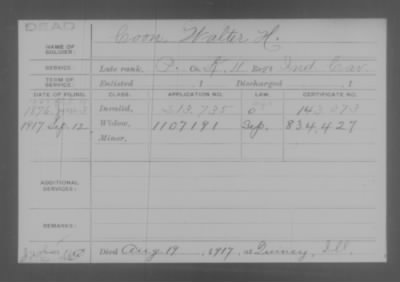 DEAD
NAME OF SOLDIER:
Coon Walter H.
SERVICE:
Late rank, P. Co. K, 11 Reg't Ind Cav.
TERM OF SERVICE:
Enlisted 1 Discharged 1
DATE OF FILING. CLASS. APPLICATION NO. LAW. CERTIFICATE NO.
1876 Invalid,
1917 Sep. 12 Widow, 1107191 Sep. 834,427
Minor,
ADDITIONAL SERVICES:
REMARKS:
Died Aug 19, 1917, at Quincy, Ill.